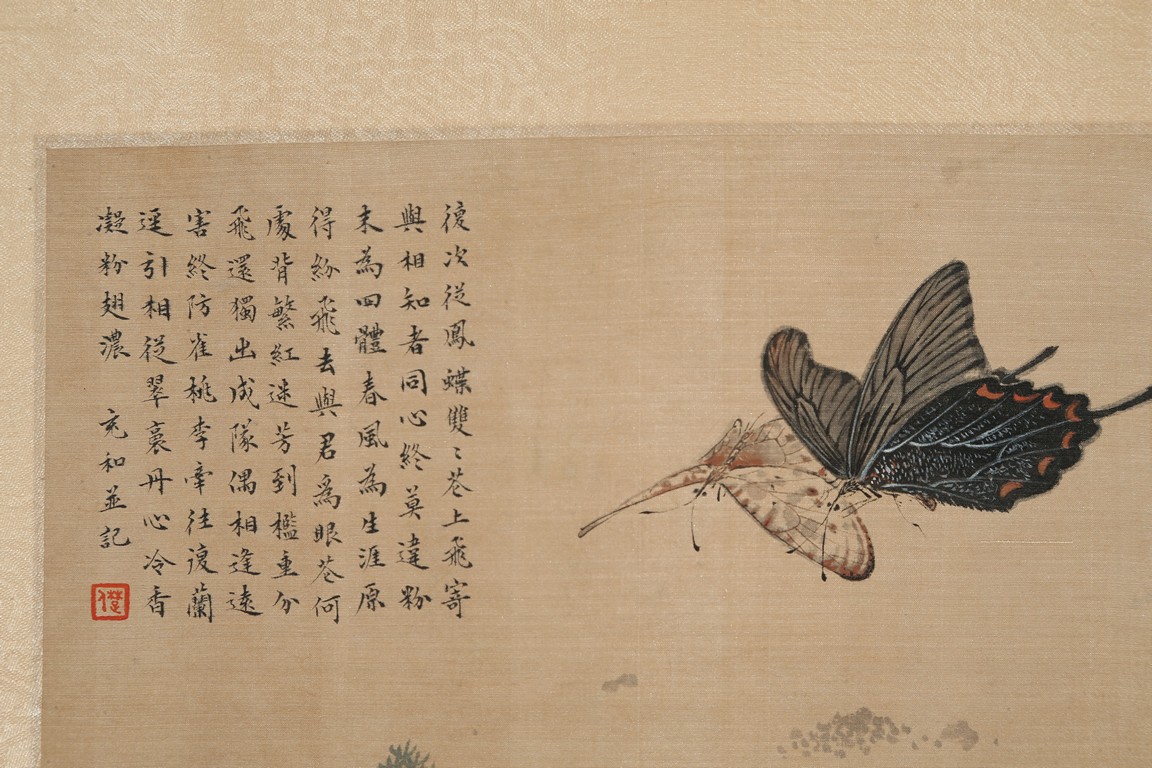 復次從鳳蝶雙〻花上飛寄
與相知者同心終莫違粉
末為四體春風為生涯原
得紛飛去與君為眼花何
處背繁紅迷芳到檻重分
飛還獨出成隊偶相逢遠
害終防雀桃李牽往復蘭
逕引相從翠裏丹心冷香
凝粉翅濃 充和並記